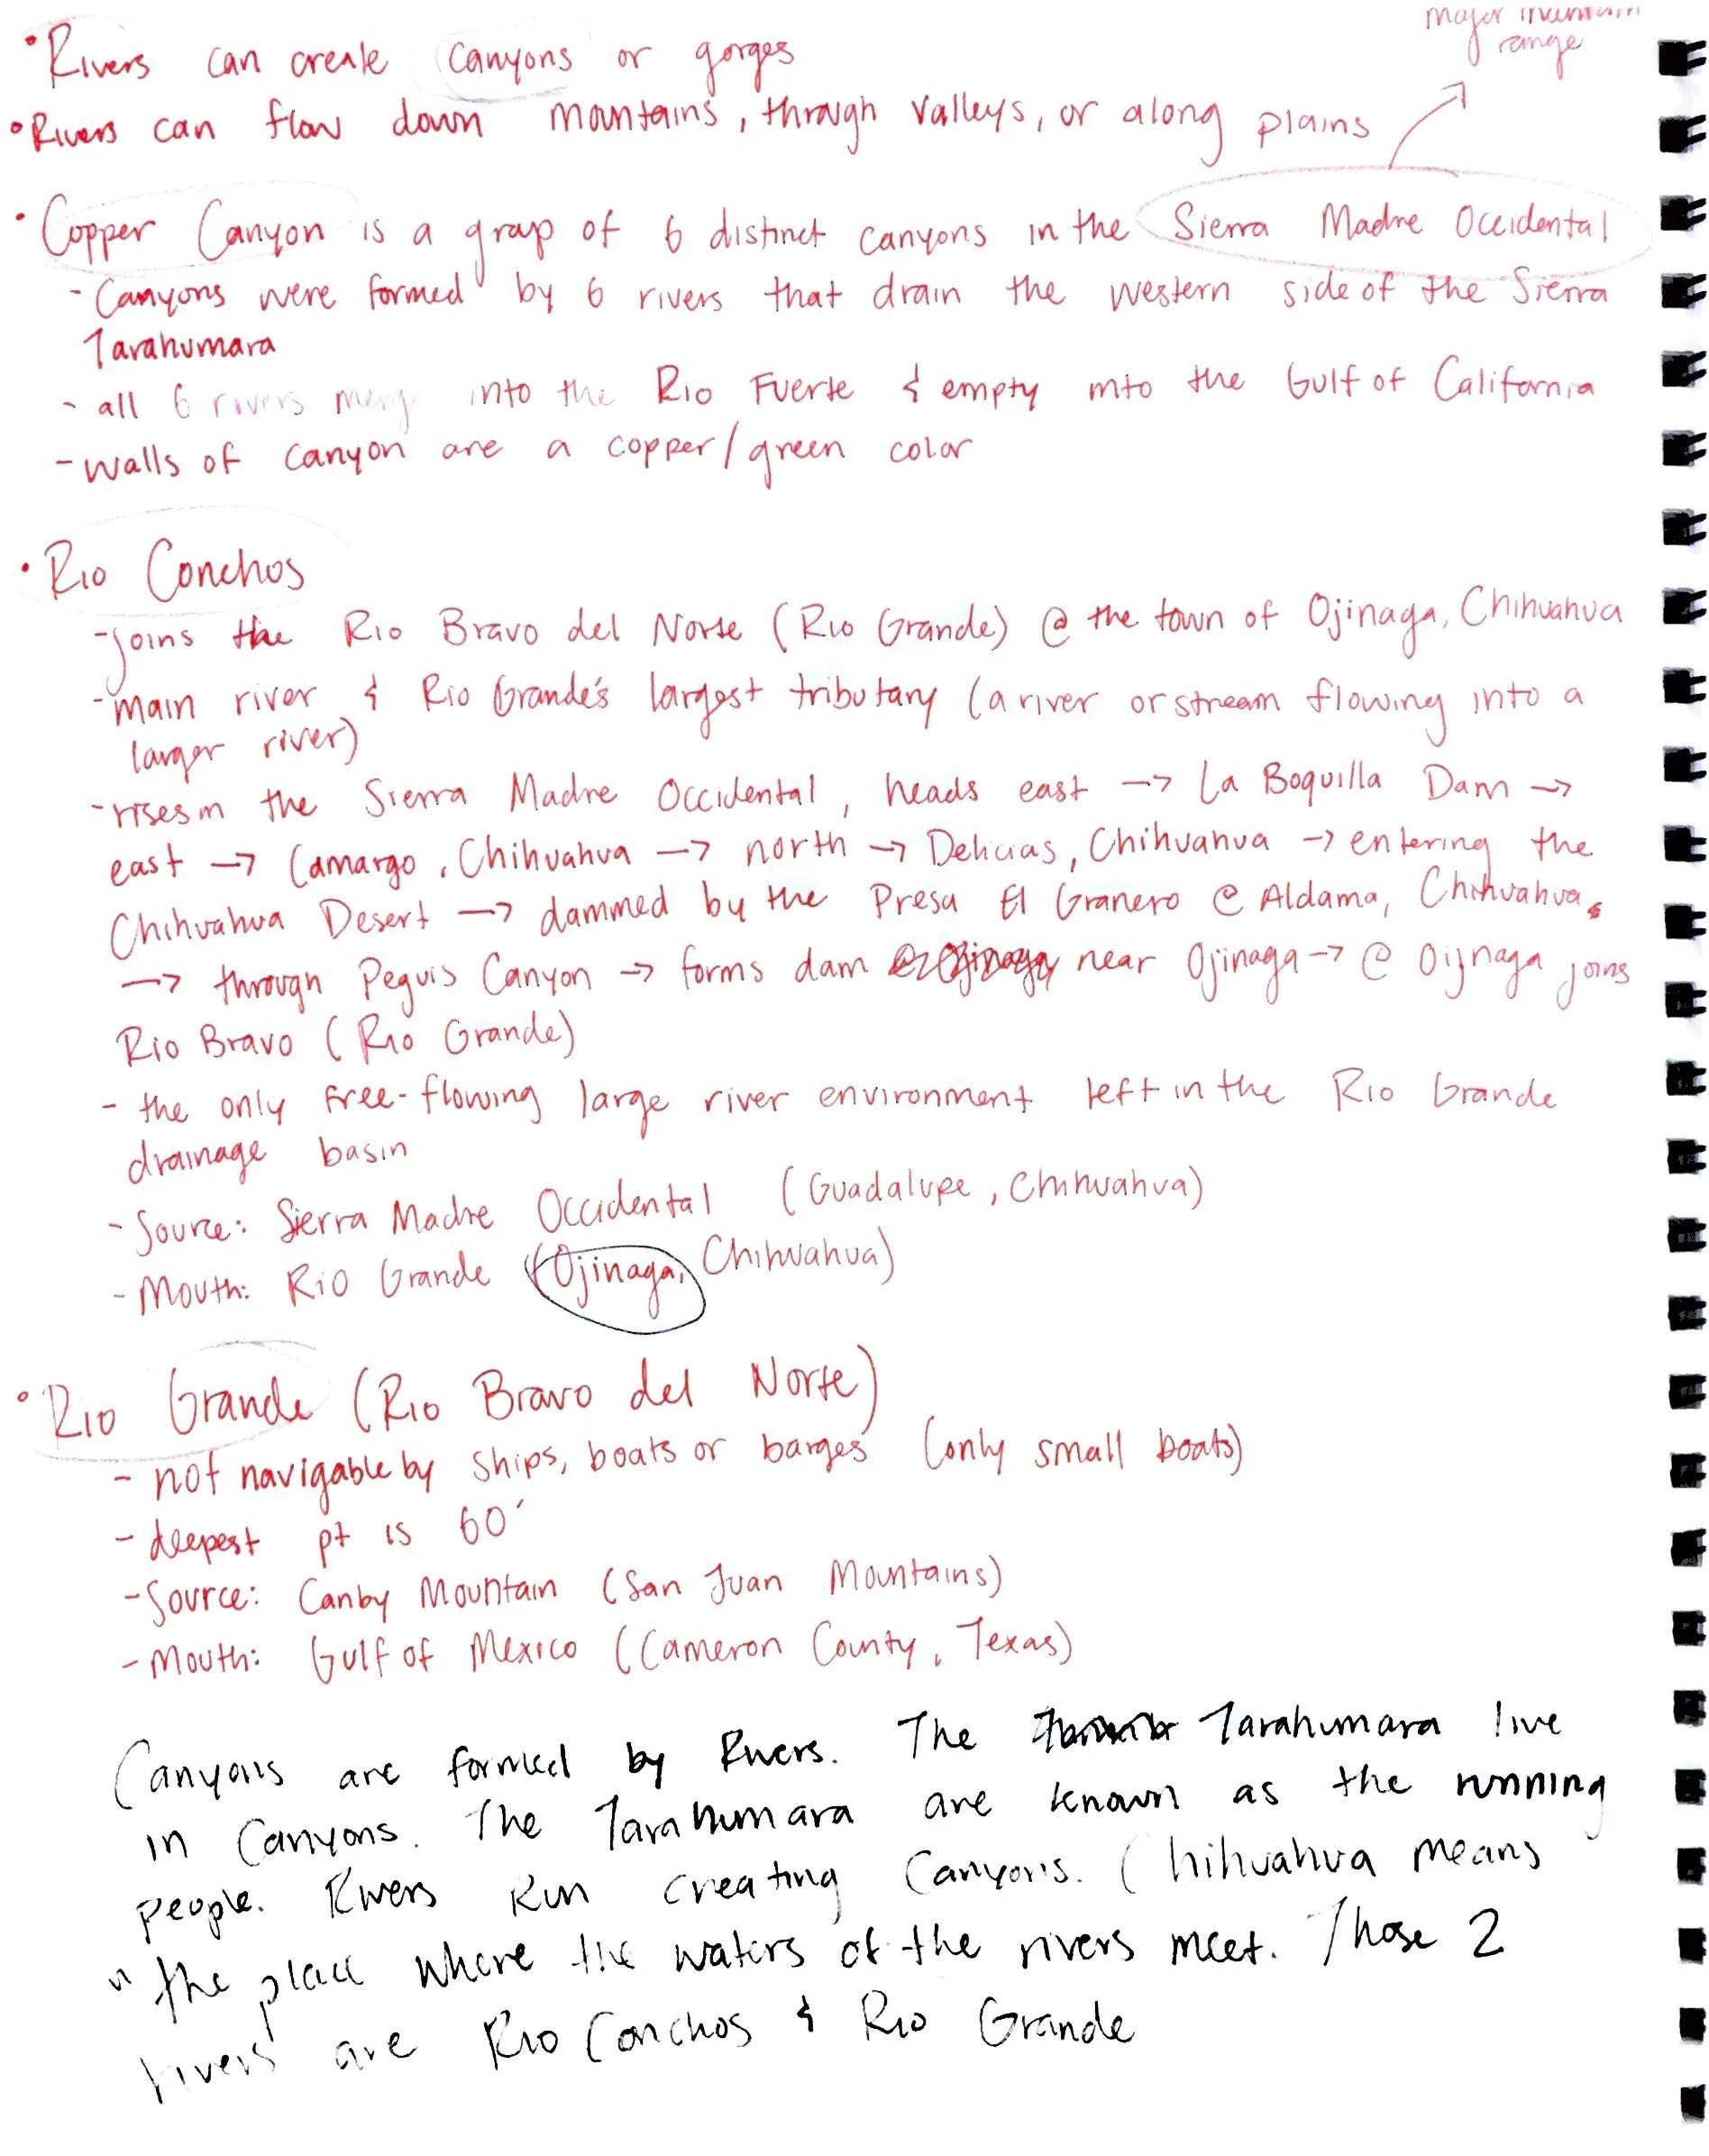 major mountain
range
• Rivers can create canyons or gorges
• Rivers can flow down mountains, through valleys, or along plains
• Copper Canyon is a group of 6 distinct canyons in the Sierra Madre Occidental
- Canyons were formed by 6 rivers that drain the western side of the Sierra
Tarahumara
- all 6 rivers merge into the Rio Fuerte & empty into the Gulf of California
- walls of canyon are a copper/green color
• Rio Conchos
- joins the Rio Bravo del Norte (Rio Grande) @ the town of Ojinaga, Chihuahua
- main river & Rio Grande's largest tributary (a river or stream flowing into a
larger river)
- rises in the Sierra Madre Occidental, heads east → La Boquilla Dam →
east → Camargo, Chihuahua → north → Delicias, Chihuahua → entering the
Chihuahua Desert → dammed by the Presa El Granero @ Aldama, Chihuahua,
→ through Peguis Canyon → forms dam @ Ojinaga near Ojinaga → @ Oijnaga joins
Rio Bravo (Rio Grande)
- the only free-flowing large river environment left in the Rio Grande
drainage basin
- Source: Sierra Madre Occidental (Guadalupe, Chihuahua)
- Mouth: Rio Grande (Ojinaga, Chihuahua)
• Rio Grande (Rio Bravo del Norte)
- not navigable by ships, boats or barges (only small boats)
- deepest pt is 60'
- Source: Canby Mountain (San Juan Mountains)
- Mouth: Gulf of Mexico (Cameron County, Texas)
Canyons are formed by Rivers. The Tarahumara live
in Canyons. The Tarahumara are known as the running
people. Rivers Run creating Canyons. Chihuahua means
"the place where the waters of the rivers meet. Those 2
rivers are Rio Conchos & Rio Grande